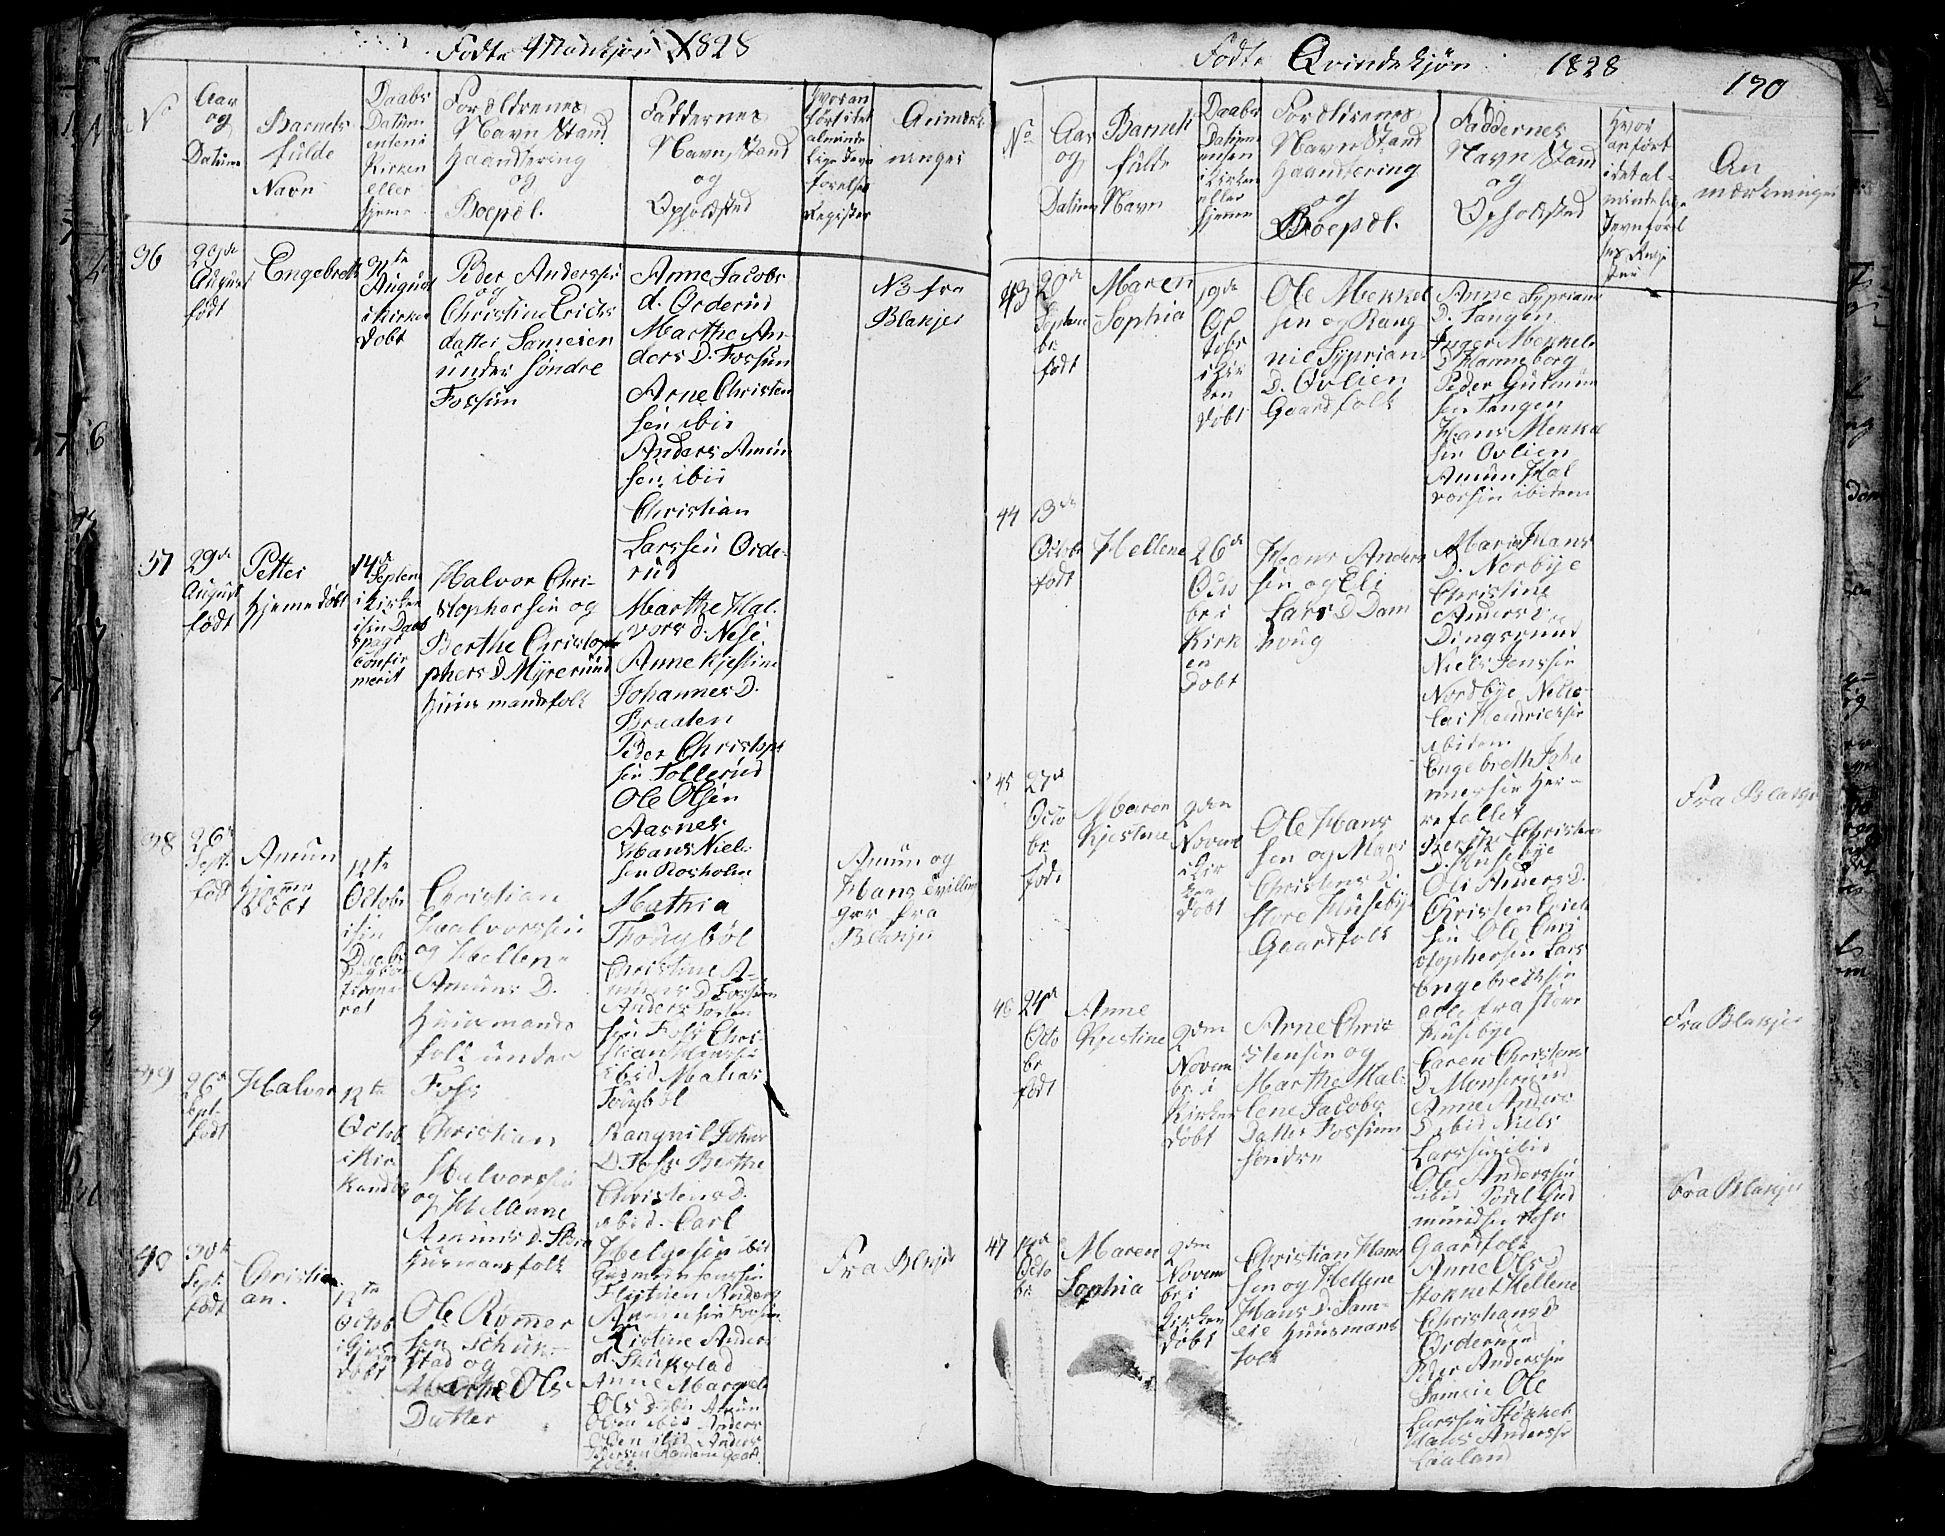 Födte Mandkjön 1828
No
Aar
og
Datum
Barnets
fulde
Navn
Daabs
Datum
enten i
Kirken
eller
hjeme
Forældrenes
Navn Stand
Haandtering
og
Boepæl.
Faddernes
Navn Stand
og
Opholdsted
Hvor an
fört i det
alminde
lige Jevn
förelses
Register
Anmærk
ninger
36
August
födt
Engebreth
August
i Kirken
dobt
Peder Andersen
og
Christine Erichs
datter Sameien
under söndre
Fossum
Anne Jacobs
d. Orderud
Marthe An-
ders D. Fossum
Arne Christen
sen ibid
Anders Amun
sen ibid
Christian
Larssen Orde-
rud
NB fra
Blakjer
37
29de
August
födt
Petter
hjemedöbt
14de
Septem
i Kirken
i sin Daabs
pagt
confir
merit
Halvor Chri-
stophersen og
Berthe Christop
phers D. Myrerud
Huusmandsfolk
Marthe Hal-
vors D. Nese
Anne Kjestine
Johannes D.
Braaten
Peder Christop
sen Tollerud
Ole Olsen
Aarnes
Hans Niel-
sen Rosholm
38
26de
Sept.
födt
Amun
hjemme
döbt
12te
Octobr
i sin
Daabs
pagt con
firme
ret
Christian
Halvorssen
og Hellene
Amuns D.
Huusmands
folk under
Foss
Mathia
Thougböl
Christine A-
muns D. Fossum
Anders
sen Foss Chri-
stian
ibid Matias
Tougböl
Amun og
Hans Tvilling
er fra
Blakjer
39
26de
Sept.
födt
Halvor
12te
Octob.
i Kir
ken döb
Christian
Halvorssen
og Hellenne
Amuns D.
Huusmansfolk
Rangnil Johan
D. Foss Berthe
Christens D.
ibid. Carl
Helgesen ibid
Gudmun Jenssen
40
30te
Sept.
födt
Christi
an.
12te
Octob
i Kir
döbt
Ole Rommer
sen Schuk-
stad og
Marthe Ols
Datter
Amunsen Fossum
Kistine Anders
d. Skukstad
Anne Margrete
Ols D. ibid Amun
Olsen ibid Anders
Olsen ibid Anders
Fra Blakjer
Födte Qvindekjön 1828
130
No
Aar
og
Datum
Barnets
fulde
Navn
Daabs
Datum
enten
i Kirken
eller
hjeme
Forældrenes
Navn Stand
Haandtering
og
Boepæl.
Faddernes
Navn Stand
og
Opholdsted
Hvor
anfört
i det al-
mindelige
Jevnförel
ses Regi
ster
An
mærkninger
43
20de
Septem
br.
födt
Maren
Sophia
19de
Oc
tobr
i Kir
ken
döbt
Ole Mekkel
sen og Rang
nil Syprians
D. Ovlien
Gaardfolk
Anne Syprians
D. Tangen
Inger Mekkels
D. Hanneborg
Peder Gudmun
sen Tangen
Hans Mekkel
sen Ovlien
Amun Hal
vorsen ibidem
44
13de
Octobr
födt
Hellene
26de
Octo
br i
Kirk
en
döbt
Hans Anders
sen og Eli
Lars D. Dam
houg
Maria Hans
D. Norbye
Christine
Anders D.
Dingsrud
Niels Jenssen
Nordbye Nico-
lai Hendricksen
ibidem
Engebreth Joha
nnessen Her-
refellet
45
27de
Octo
br.
föd.
Maren
Kjestine
9den
Novem
i Kir
ken
döbt
Ole Hans
sen og Mari
Christens D.
store Huseby
Gaardfolk
Berthe Christens
D. Husebye
Oli Anders D.
Christen Erich
sen Ole Chri
stophersen Lars
Engebretsen
alle fra store
Husebye
Fra Blakjer
46
24de
Octo
br
födt
Anne
Kjestine
9den
Novem
br. i
Kirken
döbt
Arne Chri-
stensen og
Marthe Mal-
lene Jacobs
Datter Fossum
söndre
Caren Christens
D. Monserud
Anne Anders
D. ibid Niels
Larssen ibid
Ole Anderssen
ibid Poul Gud
mundsen
Gaardfolk
Fra Blakjer
47
12te
Octo
br.
Maren
Sophia
9den
Novem
br i
Kirken
döbt
Christian Hans
sen og Hellene
Hans D. Sam-
eie Huusmans
folk
Anne Ols D.
Stokket Hellene
Christians D.
Orderud
Peder Anderssen
Sameie Ole
Larssen Stokket
Hans Anderssen
Laaland
Fra Blakjer